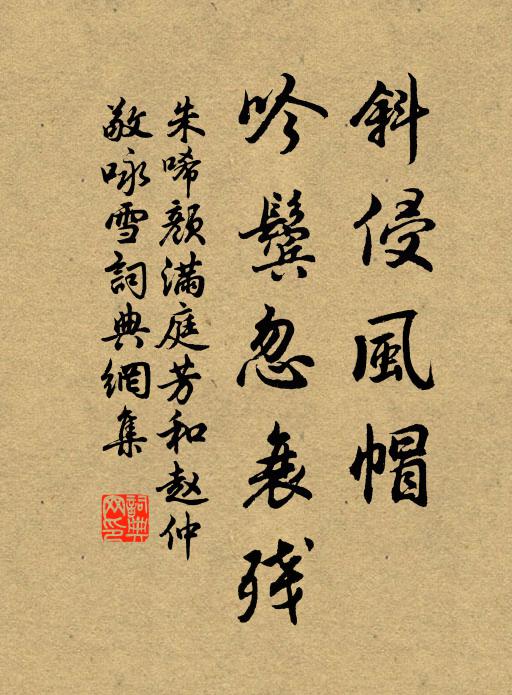 斜侵風帽
吟鬓忽衰残
朱唏颜满庭芳和赵仲
敬咏雪詞典網集
詞典
网印